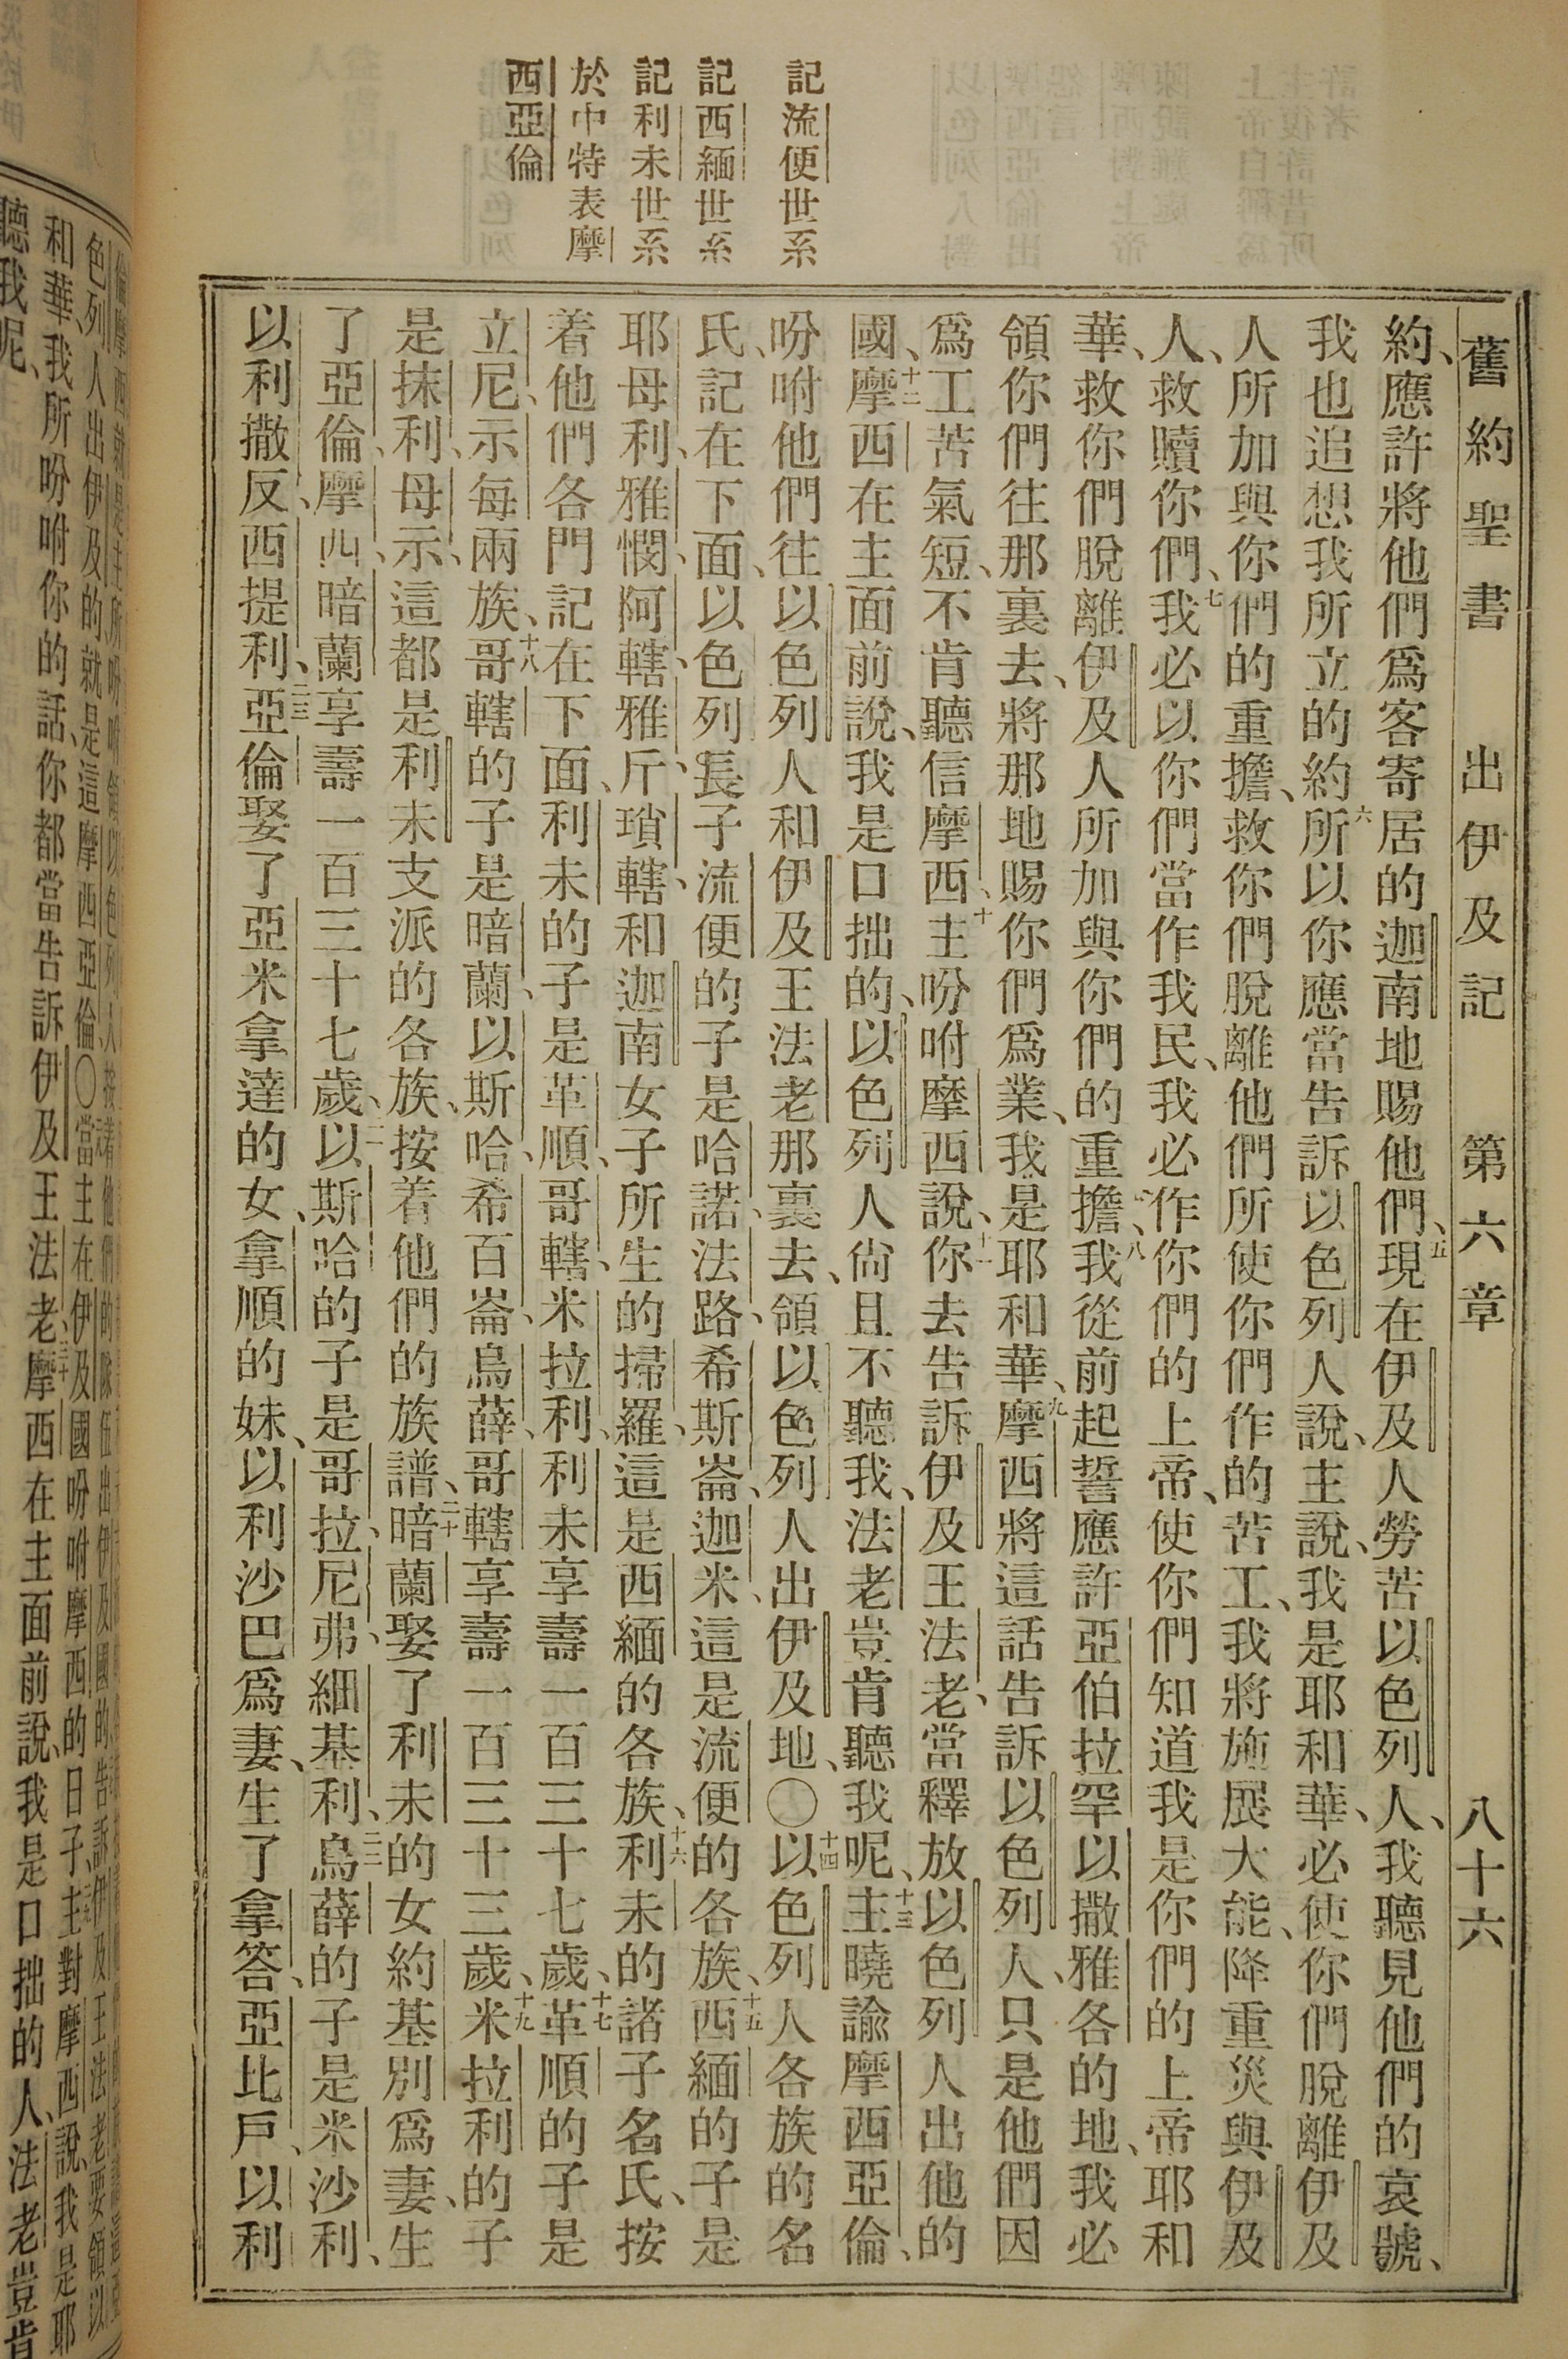 舊約聖書 出伊及記 第六章 八十六
記流便世系
記西緬世系
記利未世系
於中特表摩
西亞倫
約、應許將他們爲客寄居的迦南地賜他們、五現在伊及人勞苦以色列人、我聽見他們的哀號、
我也追想我所立的約、六所以你應當告訴以色列人說、主說、我是耶和華、必使你們脫離伊及
人所加與你們的重擔、救你們脫離他們所使你們作的苦工、我將施展大能、降重災與伊及
人、救贖你們、七我必以你們當作我民、我必作你們的上帝、使你們知道我是你們的上帝耶和
華、救你們脫離伊及人所加與你們的重擔、八我從前起誓應許亞伯拉罕以撒雅各的地、我必
領你們往那裏去、將那地賜你們爲業、我是耶和華、九摩西將這話告訴以色列人、只是他們因
爲工苦氣短、不肯聽信摩西、十主吩咐摩西說、十一你去告訴伊及王法老、當釋放以色列人出他的
國、十二摩西在主面前說、我是口拙的、以色列人尙且不聽我、法老豈肯聽我呢、十三主曉諭摩西亞倫、
吩咐他們往以色列人和伊及王法老那裏去、領以色列人出伊及地、〇十四以色列人各族的名
氏、記在下面、以色列長子流便的子是哈諾、法路、希斯崙、迦米、這是流便的各族、十五西緬的子是
耶母利、雅憫、阿轄、雅斤、瑣轄、和迦南女子所生的掃羅、這是西緬的各族、十六利未的諸子名氏、按
着他們各門記在下面、利未的子是革順、哥轄、米拉利、利未享壽一百三十七歲、十七革順的子是
立尼、示每兩族、十八哥轄的子是暗蘭、以斯哈、希百崙、烏薛、哥轄享壽一百三十三歲、十九米拉利的子
是抹利、母示、這都是利未支派的各族、按着他們的族譜、二十暗蘭娶了利未的女約基別爲妻、生
了亞倫、摩西、暗蘭享壽一百三十七歲、二一以斯哈的子是哥拉、尼弗、細基利、二二烏薛的子是米沙利、
以利撒反、西提利、二三亞倫娶了亞米拿達的女、拿順的妹、以利沙巴爲妻、生了拿答、亞比戶、以利
和華、我所吩咐你的話、你都當告訴伊及王法老、三十摩西在主面前說、我是口拙的人、法老豈肯
聽我呢、